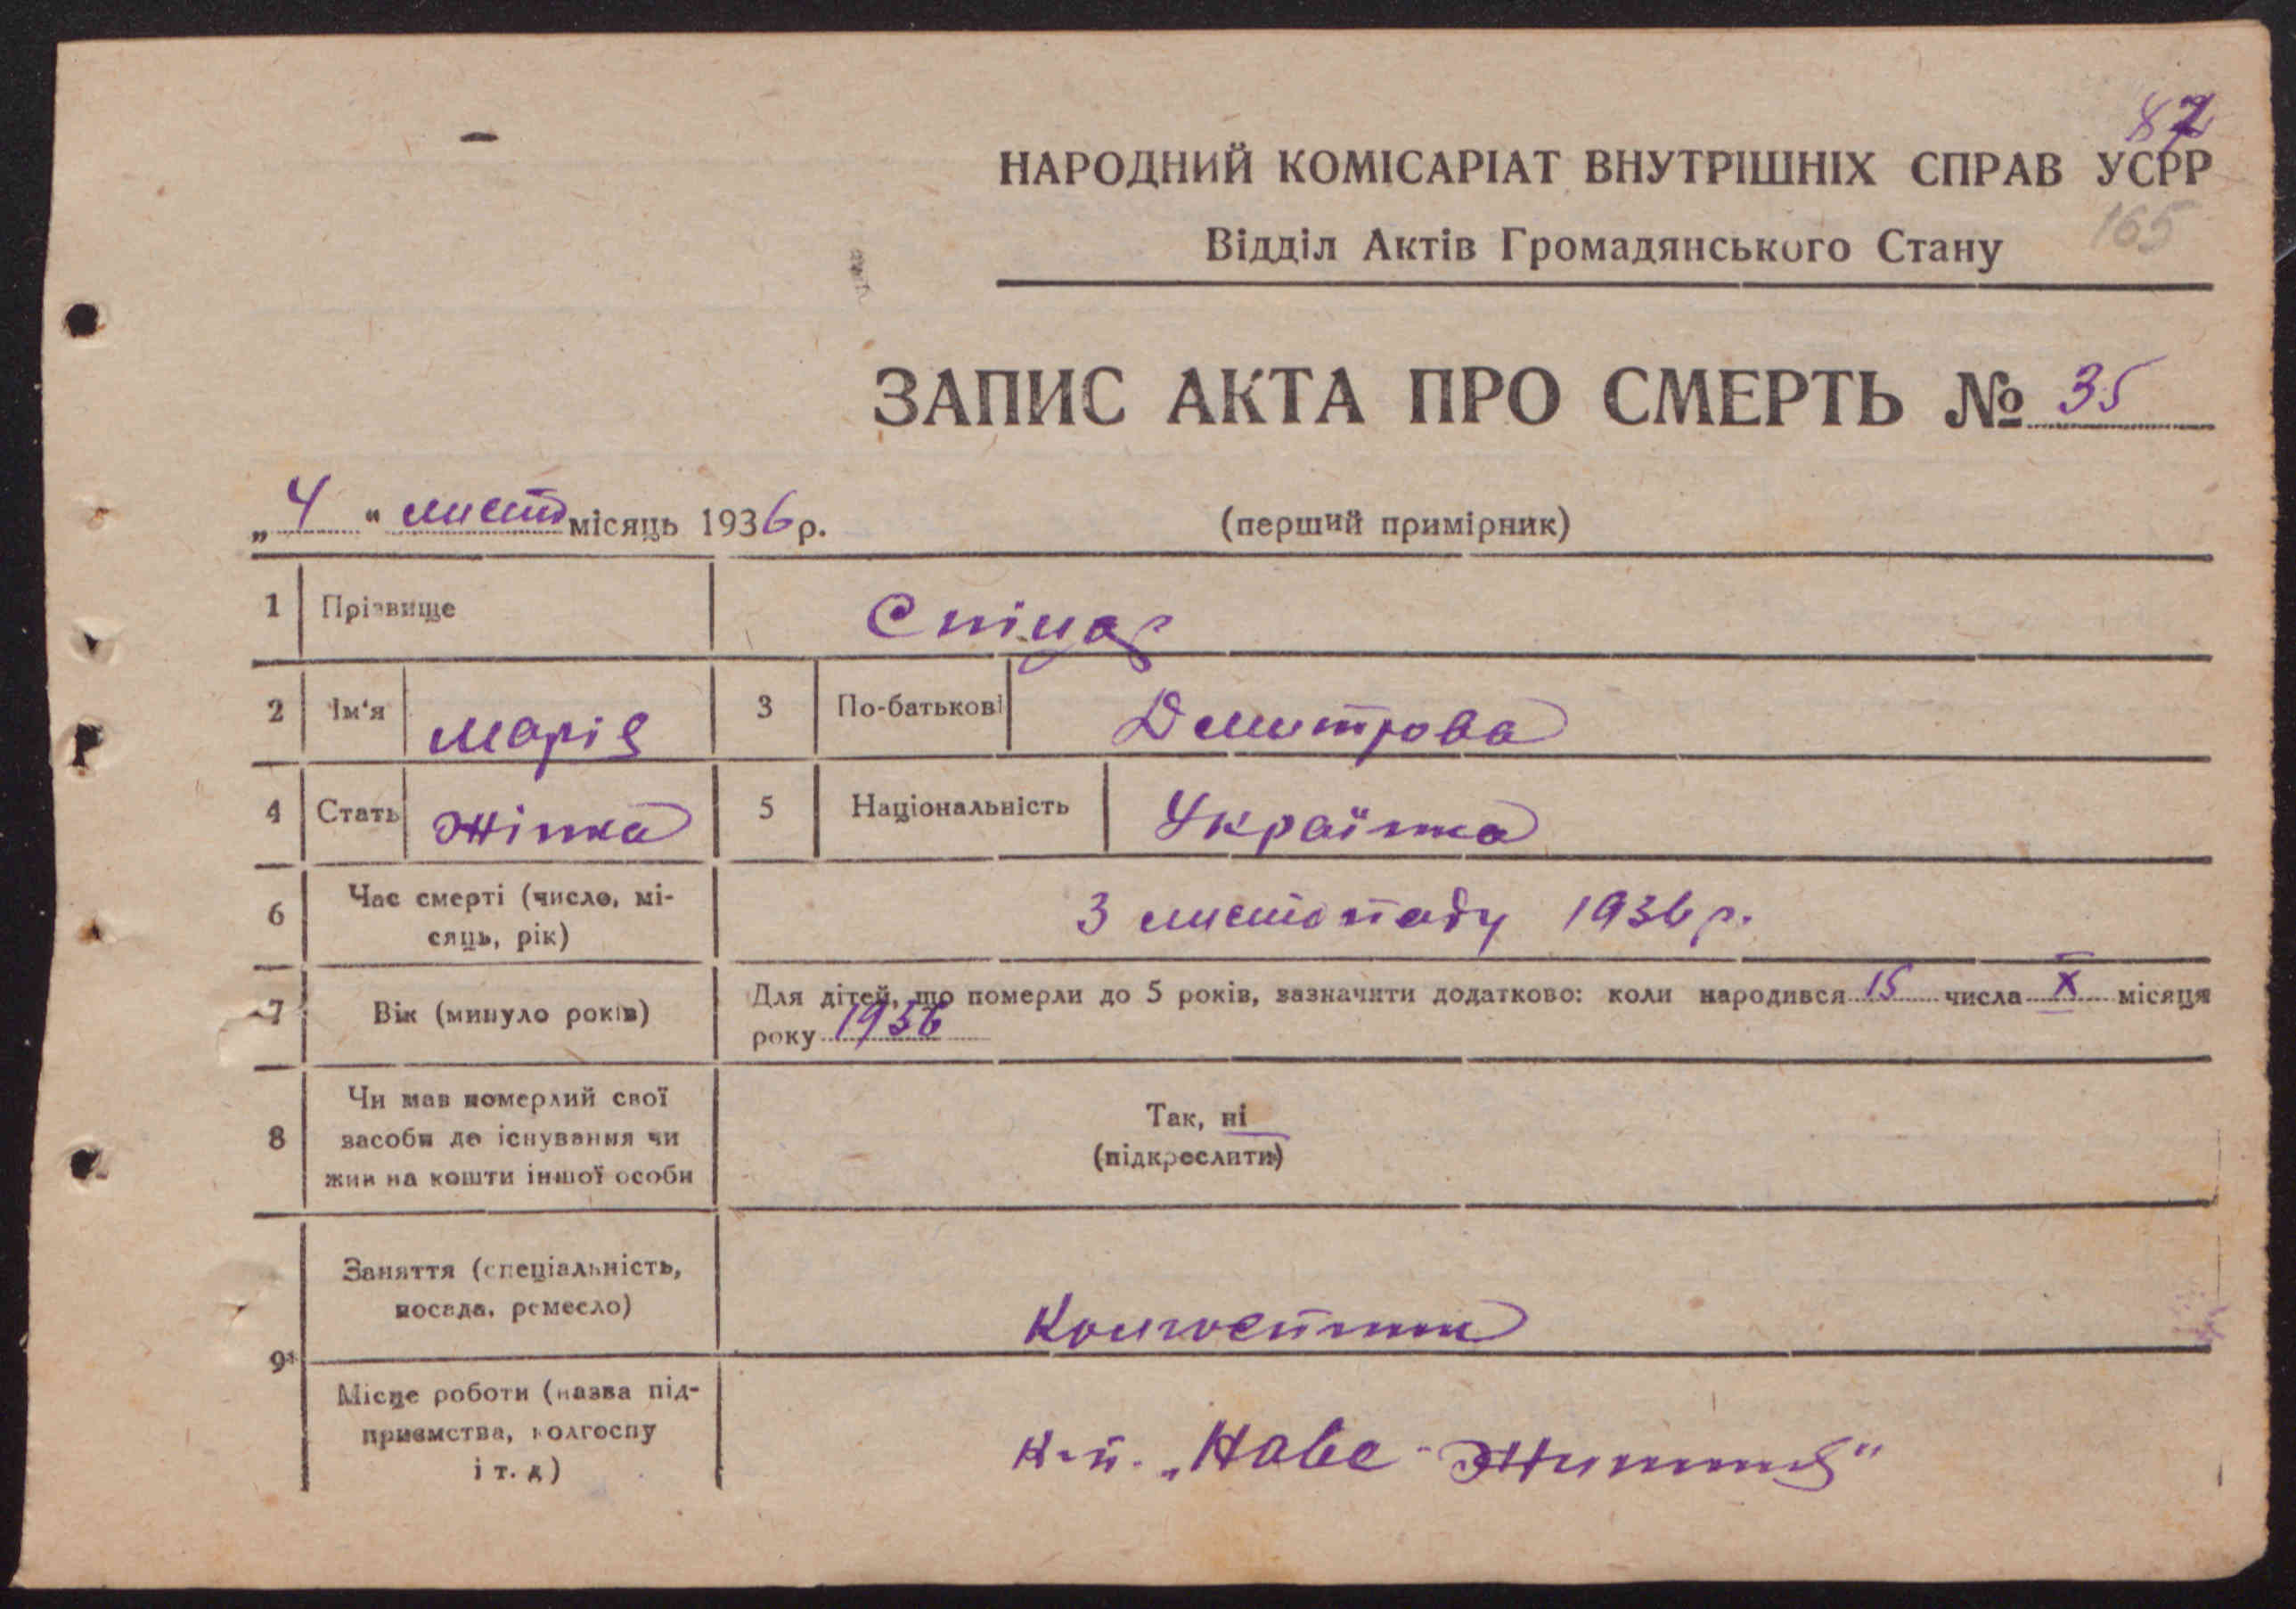 87
НАРОДНИЙ КОМІСАРІАТ ВНУТРІШНІХ СПРАВ УСРР
165
Відділ Актів Громадянського Стану
ЗАПИС АКТА ПРО СМЕРТЬ № 35
„ 4 “ листоп місяць 1936 р. (перший примірник)
1 Прізвище Спіцар
2 Ім'я Марія 3 По-батькові Демитрова
4 Стать жінка 5 Національність Українка
6 Час смерті (число, мі-
сяць, рік) 3 листопаду 1936 р.
7 Вік (минуло років) Для дітей, що померли до 5 років, зазначити додатково: коли народився 15 числа X місяця
року 1936
8 Чи мав померлий свої
засоби до існування чи
жив на кошти іншої особи
Так, ні
(підкреслити)
9 Заняття (спеціальність,
посада, ремесло) Колгоспник
Місце роботи (назва під-
приємства, колгоспу
і т. д) к-п. „Нове Життя“